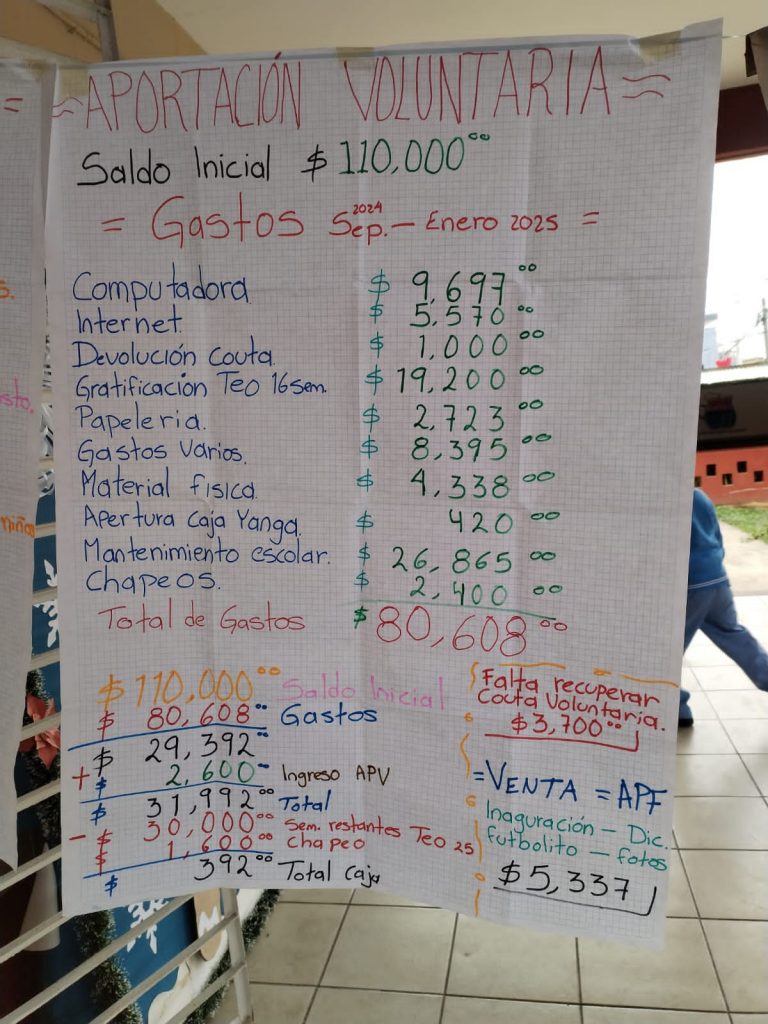 ≈APORTACIÓN VOLUNTARIA≈
Saldo Inicial $110,000⁰⁰
= Gastos Sep. 2024 – Enero 2025 =
Computadora $ 9,697⁰⁰
Internet $ 5,570⁰⁰
Devolución couta. $ 1,000⁰⁰
Gratificación Teo 16sem. $ 19,200⁰⁰
Papeleria. $ 2,723⁰⁰
Gastos varios. $ 8,395⁰⁰
Material fisica. $ 4,338⁰⁰
Apertura caja Yanga. $ 420⁰⁰
Mantenimiento escolar. $ 26,865⁰⁰
Chapeos. $ 2,400⁰⁰
Total de Gastos $ 80,608⁰⁰
$110,000⁰⁰ Saldo Inicial
$ 80,608⁰⁰ Gastos
$ 29,392⁰⁰
+ $ 2,600⁰⁰ Ingreso APV
$ 31,992⁰⁰ Total
- $ 30,000⁰⁰ Sem. restantes Teo 25
$ 1,600⁰⁰ Chapeo
$ 392⁰⁰ Total Caja
Falta recuperar
Couta Voluntaria.
$3,700⁰⁰
=VENTA = APF
Inaguración – Dic.
futbolito – fotos
$5,337
=
s.
sto.
niños